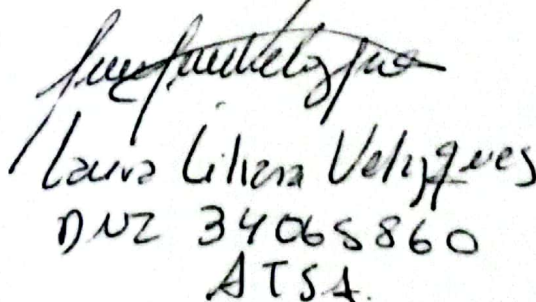 Laura Liliana Velizques
DNI 34065860
ATSA